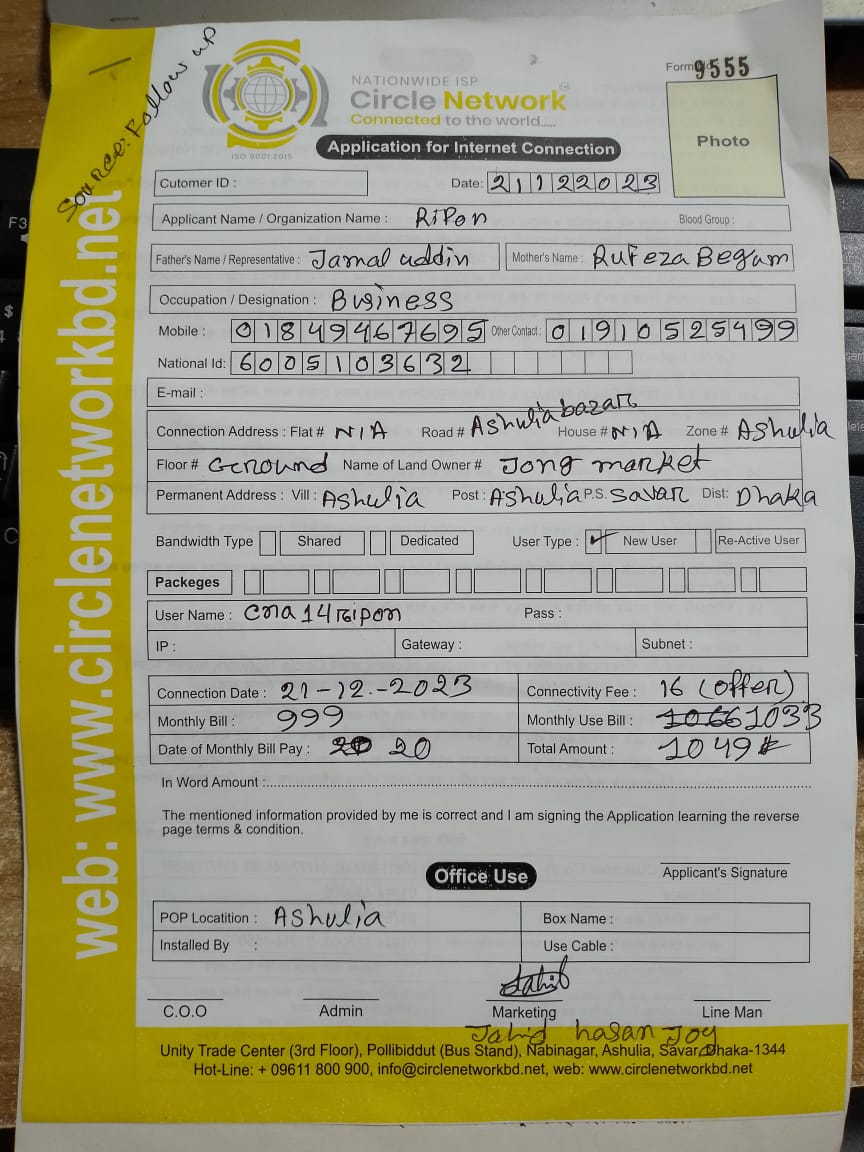 Source: Follow up
NATIONWIDE ISP
Circle Network
Connected to the world.....
ISO 9001:2015
Form No 9555
Photo
Application for Internet Connection
Cutomer ID :
Date: 21122023
Applicant Name / Organization Name : Ripon Blood Group :
Father's Name / Representative : Jamal uddin Mother's Name : Rufeza Begum
Occupation / Designation : Business
Mobile : 01849467695 Other Contact : 01910525499
National Id: 6005103632
E-mail :
Connection Address : Flat # N/A Road # Ashulia bazar House # N/A Zone # Ashulia
Floor # Ground Name of Land Owner # Jong market
Permanent Address : Vill : Ashulia Post : Ashulia P.S. Savar Dist: Dhaka
Bandwidth Type Shared Dedicated User Type : ✓ New User Re-Active User
Packeges
User Name : cna14ripon Pass :
IP : Gateway : Subnet :
Connection Date : 21-12-2023 Connectivity Fee : 16 (offer)
Monthly Bill : 999 Monthly Use Bill : 1066 1033
Date of Monthly Bill Pay : 20 Total Amount : 1049
In Word Amount :
The mentioned information provided by me is correct and I am signing the Application learning the reverse
page terms & condition.
Applicant's Signature
Office Use
POP Locatition : Ashulia Box Name :
Installed By : Use Cable :
Jahid
C.O.O Admin Marketing Line Man
Jahid hasan Joy
Unity Trade Center (3rd Floor), Pollibiddut (Bus Stand), Nabinagar, Ashulia, Savar, Dhaka-1344
Hot-Line: + 09611 800 900, info@circlenetworkbd.net, web: www.circlenetworkbd.net
web: www.circlenetworkbd.net